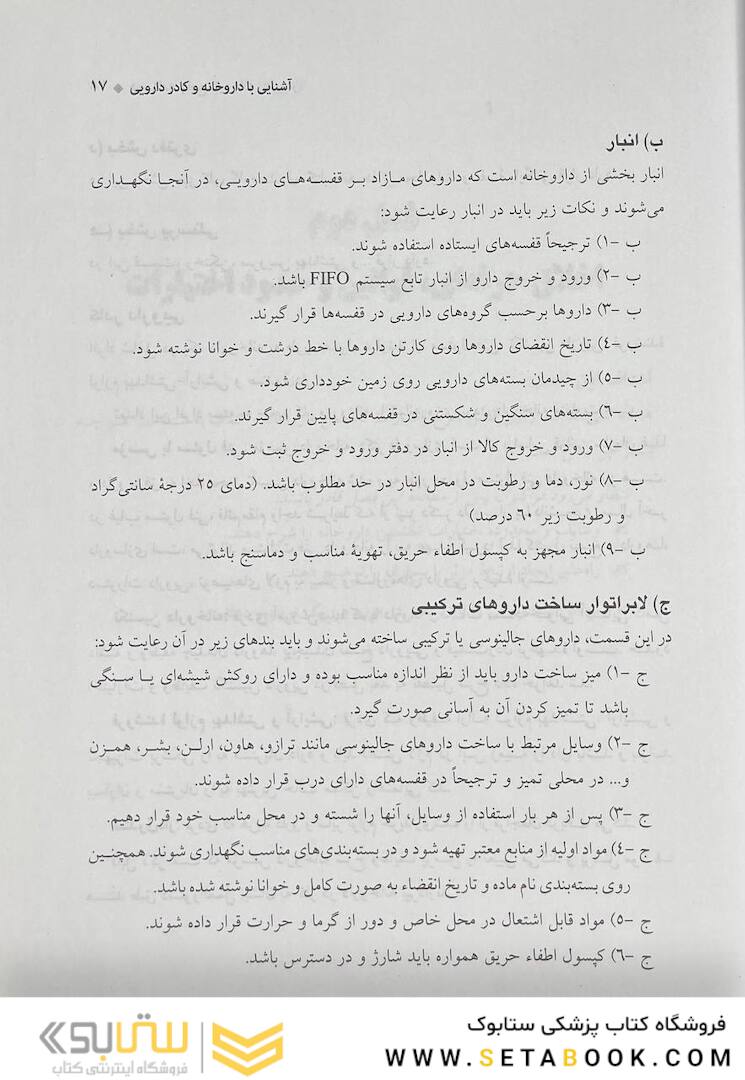 آشنایی با داروخانه و کادر دارویی ◆ ۱۷
ب) انبار
انبار بخشی از داروخانه است که داروهای مازاد بر قفسه‌های دارویی، در آنجا نگهداری
می‌شوند و نکات زیر باید در انبار رعایت شود:
ب -۱) ترجیحاً قفسه‌های ایستاده استفاده شوند.
ب -۲) ورود و خروج دارو از انبار تابع سیستم FIFO باشد.
ب -۳) داروها برحسب گروه‌های دارویی در قفسه‌ها قرار گیرند.
ب -۴) تاریخ انقضای داروها روی کارتن داروها با خط درشت و خوانا نوشته شود.
ب -۵) از چیدمان بسته‌های دارویی روی زمین خودداری شود.
ب -۶) بسته‌های سنگین و شکستنی در قفسه‌های پایین قرار گیرند.
ب -۷) ورود و خروج کالا از انبار در دفتر ورود و خروج ثبت شود.
ب -۸) نور، دما و رطوبت در محل انبار در حد مطلوب باشد. (دمای ۲۵ درجهٔ سانتی‌گراد
و رطوبت زیر ۶۰ درصد)
ب -۹) انبار مجهز به کپسول اطفاء حریق، تهویهٔ مناسب و دماسنج باشد.
ج) لابراتوار ساخت داروهای ترکیبی
در این قسمت، داروهای جالینوسی یا ترکیبی ساخته می‌شوند و باید بندهای زیر در آن رعایت شود:
ج -۱) میز ساخت دارو باید از نظر اندازه مناسب بوده و دارای روکش شیشه‌ای یا سنگی
باشد تا تمیز کردن آن به آسانی صورت گیرد.
ج -۲) وسایل مرتبط با ساخت داروهای جالینوسی مانند ترازو، هاون، ارلن، بشر، همزن
و... در محلی تمیز و ترجیحاً در قفسه‌های دارای درب قرار داده شوند.
ج -۳) پس از هر بار استفاده از وسایل، آنها را شسته و در محل مناسب خود قرار دهیم.
ج -۴) مواد اولیه از منابع معتبر تهیه شود و در بسته‌بندی‌های مناسب نگهداری شوند. همچنین
روی بسته‌بندی نام ماده و تاریخ انقضاء به صورت کامل و خوانا نوشته شده باشد.
ج -۵) مواد قابل اشتعال در محل خاص و دور از گرما و حرارت قرار داده شوند.
ج -۶) کپسول اطفاء حریق همواره باید شارژ و در دسترس باشد.
فروشگاه کتاب پزشکی ستابوک
WWW.SETABOOK.COM
ستابوک
فروشگاه اینترنتی کتاب